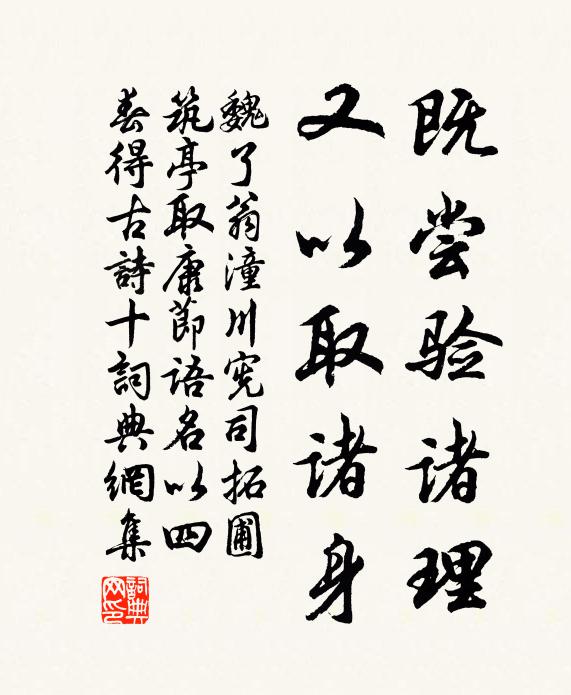 既尝验诸理
又以取诸身
魏了翁潼川宪司拓圃
筑亭取康节语名以四
春得古詩十詞典網集
詞典網印